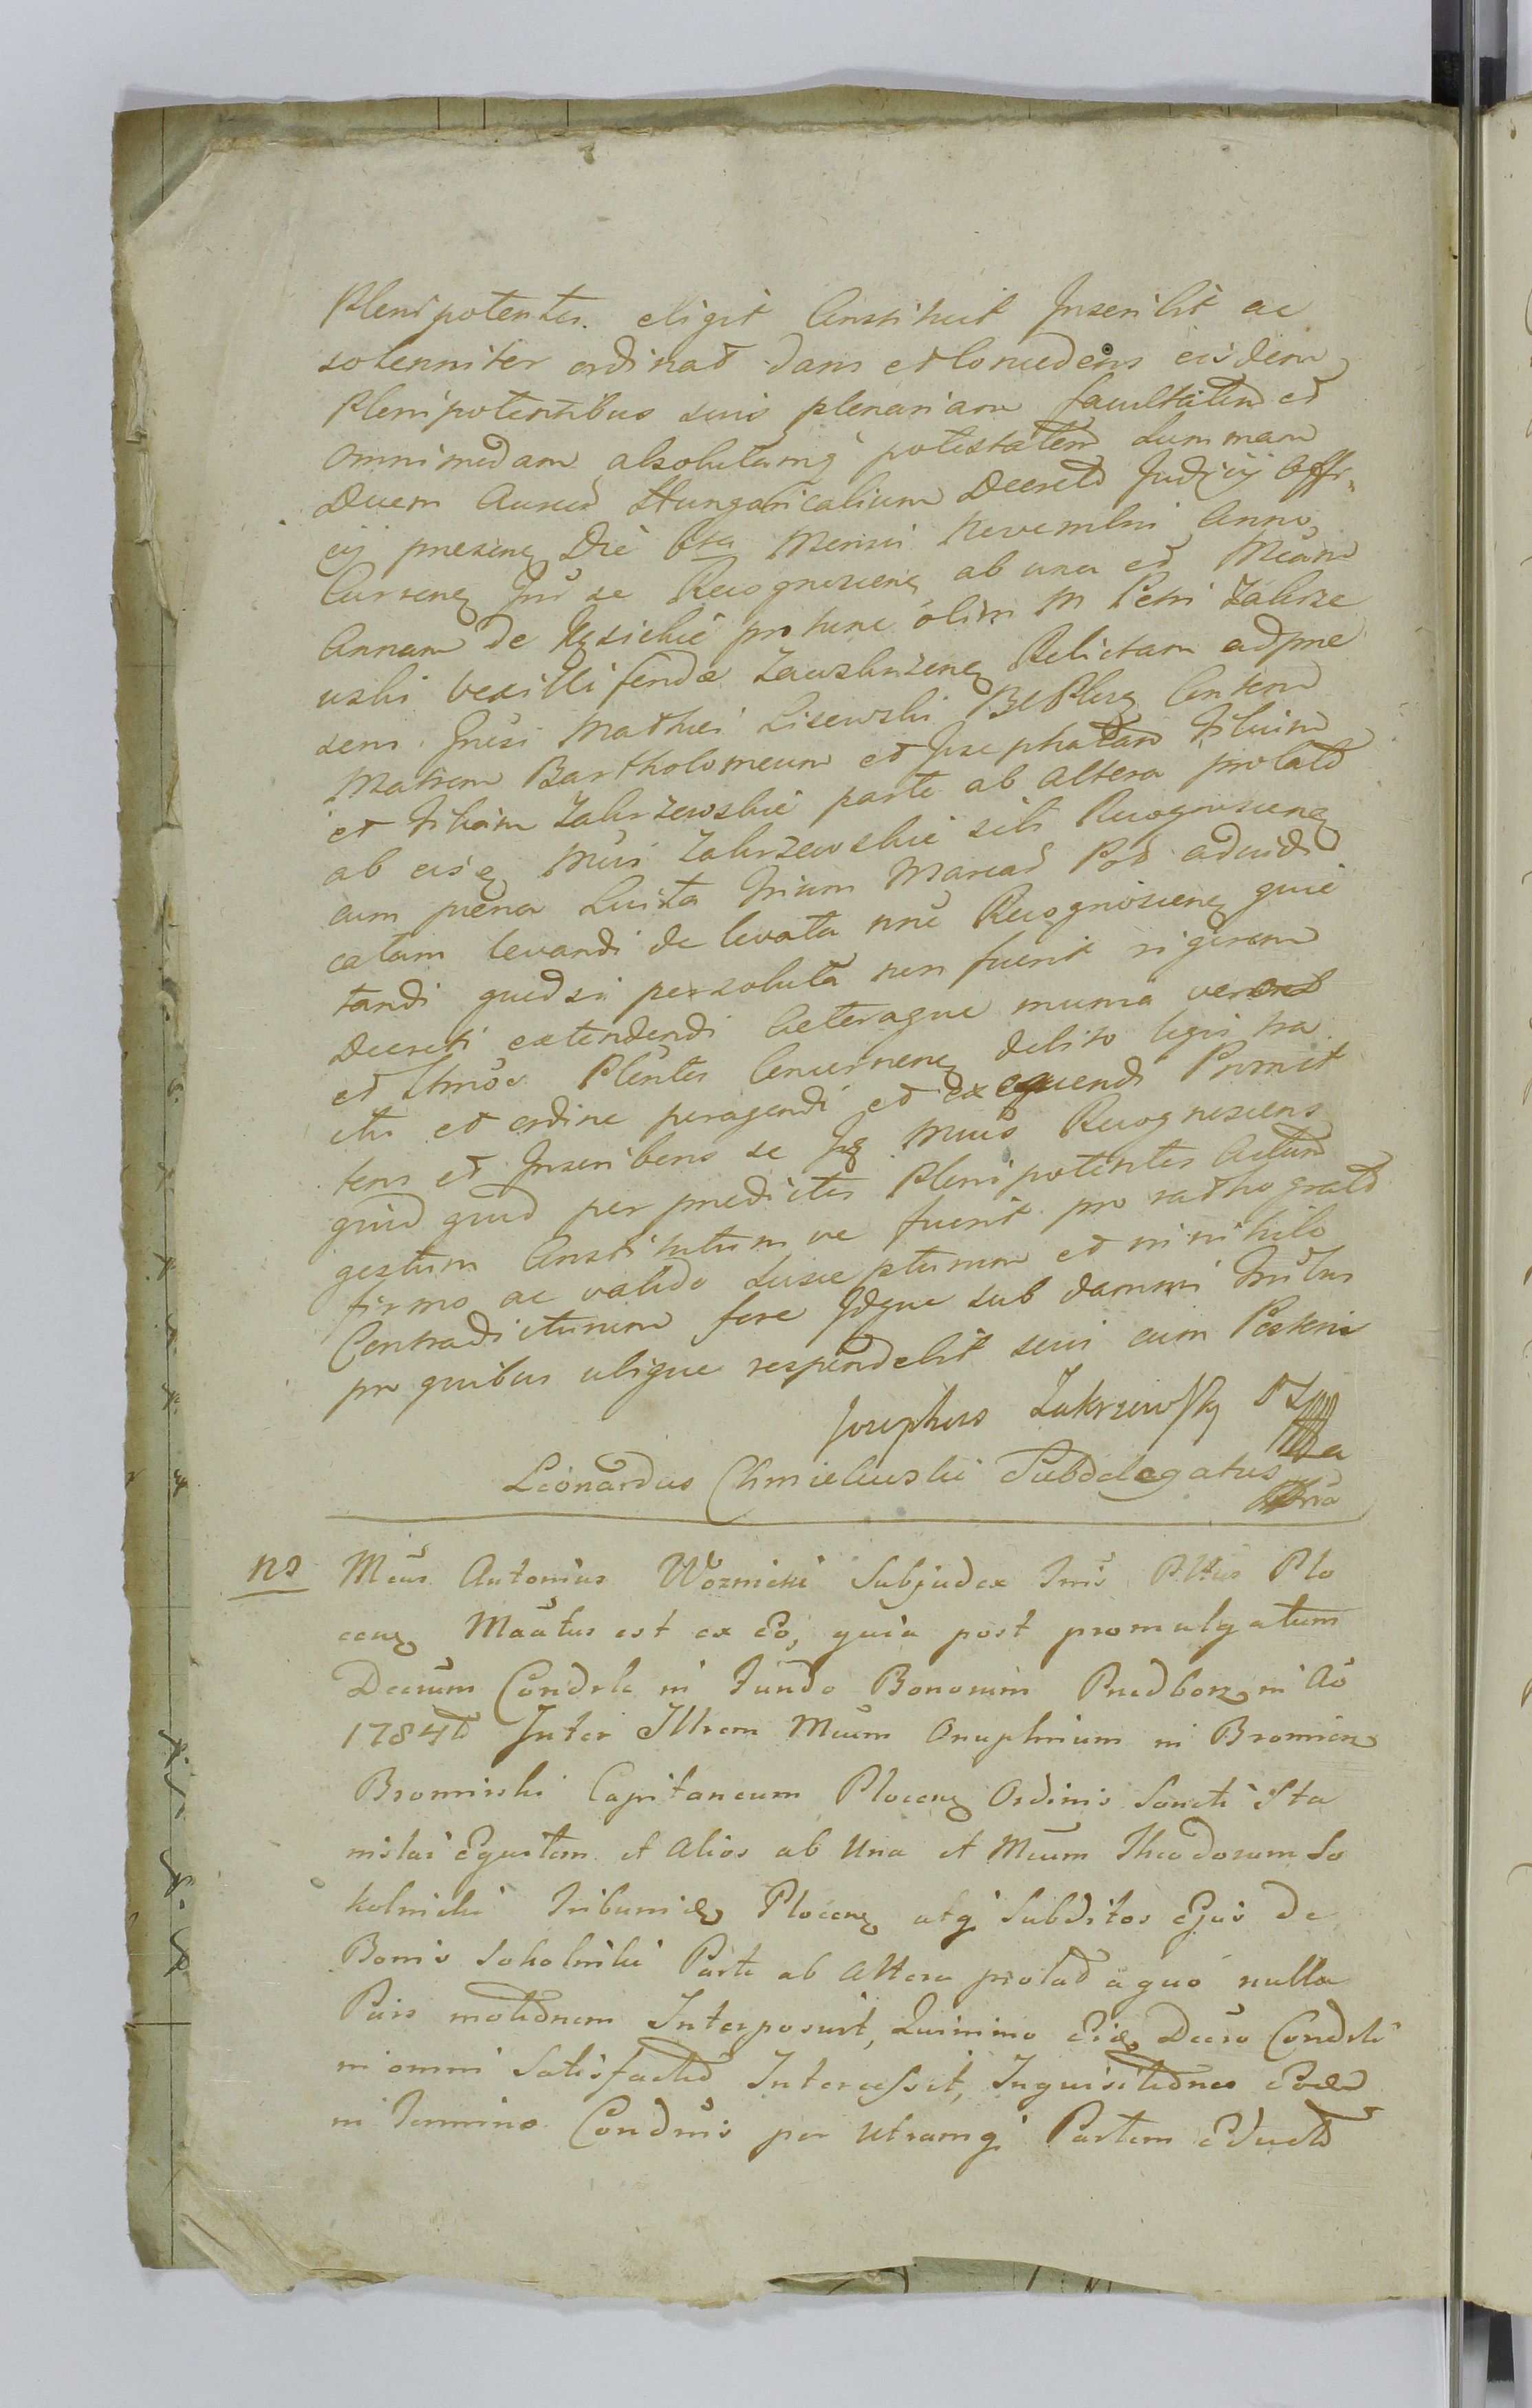 Plenipotentes. eligit Constituit Inscribit ac
solenniter ordinat dans et Concedens eisdem
Plenipotentibus suis plenariam facultatem et
omnimodam absolutamq potestatem Summam
Duem Aureor Hungaricalium Decreto Judicij Offi„
cij presenq Die 6ta Mensis Novembri Anno
Currenq Inr se Recognoscenq ab una et Mcam
Annam de pro tunc olim M Petri Zakrze
wski vexilliferidæ Zawskrzenq Relictam ad pre
sens Mathei Lisewski Conthor
Matrem Bartholomeum et Josephatam Filium
et Filiam Zakrzewskie parte ab Altera prolato
ab eisq Mcis Zakrzewskie sibi Recognoscenq
cum pæna Luita trium Marcar Pol adiudi
catam levandi de levata nne Recognoscenq quie
tandi quodsi persoluta non fuerit rigorem
Decreti extendendi Ceteraque munia
et Plentes Concernenq debito legis tra
ctu et ordine peragendi et exequendi Promit
tens et Inscribens se Mcus Recognoscens
quid quid per predictos Plenipotentes Actum
gestum Constitutum ve fuerit pro ratho grato
firmo ac valido Suscepturum et in nihilo
Contradicturum fore Idque sub damni
pro quibus ubique respondebit sui cum Posteris
Josephus Zakrzewsky
Leonardus Chmielewski Subdelegatus
Ns Mcus Antonius Woznicki Subjudex Tris Pltus Plo
cenq Maatus est ex Eo, quia post promulgatum
Decrum Condrle in Fundo Bonorum Predborz in Ao
1784to Inter Illrem Mcum Onuphrium in Bromierz
Bromirski Capitaneum Plocenq Ordinis Sancti Sta
nislai Equitem et Alios ab Una et Mcum Theodorum So
kolnicki Tribunidæ Plocenq atq Subditos Ejus de
Bonis Sokolniki Parte ab Altera prolat a quo nulla
Pars motionem Interposuit, Quinimo Decro Condrli
in omni Satisfactio Intercessit, Inquisitiones
in Termino Condris per Utramq Partem Educto